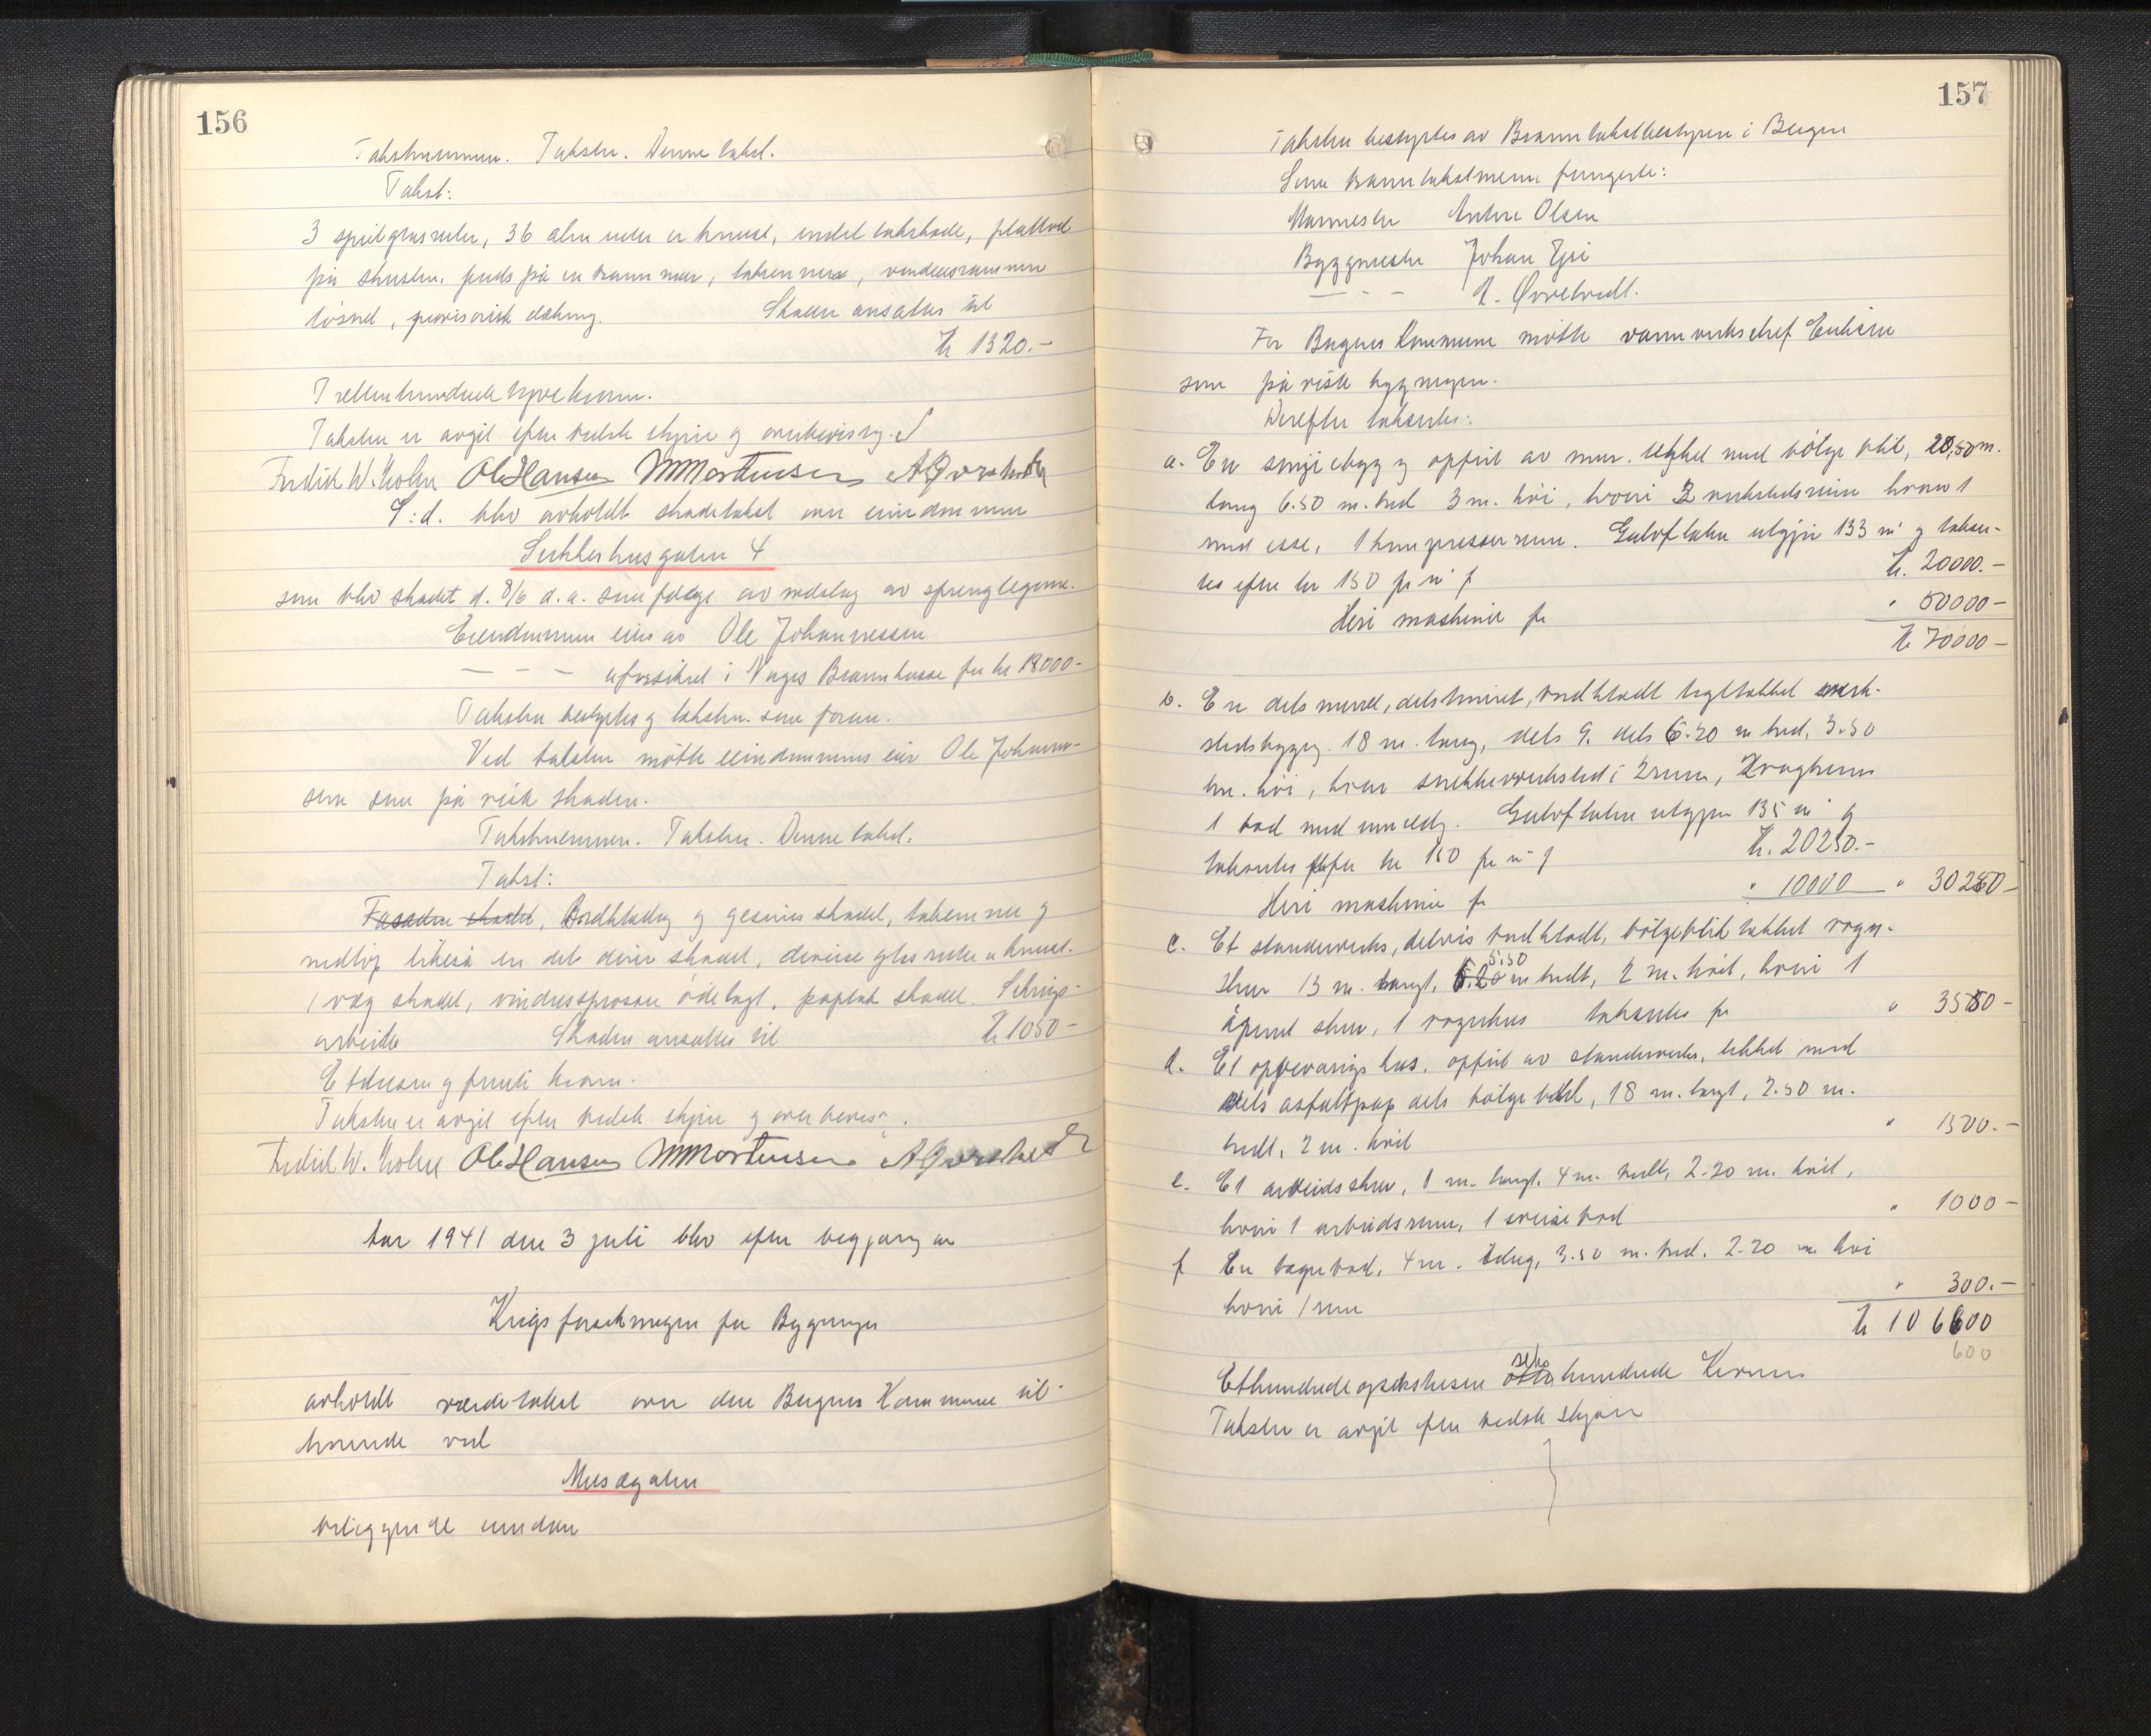 156
Takstnemnen. Taksten. Denne takst.
Takst:
3 speilglasruter, 36 alm ruter er knust, endel takskade, plattad
på skursten, puds på en brannmur, takrenner, vindusrammen
løsnet, provisorisk dækning. Skaden ansættes til
kr 1320.-
Trettenhundrede tyve kroner.
Taksten er avgit efter bedste skjøn og overbevisning.
Fredrik W. Holm Ole Hansen M Mortensen
S:d. blev avholdt skadetakst over eiendommen
Sukkerhusgaten 4
som blev skadet d. 8/6 d.a. som følge av nedslag av sprenglegeme.
Eiendommen eies av Ole Johannessen
— — — er forsikret i Norges Brannkasse for kr 18000-
Taksten bestyrtes og taksten som foran.
Ved taksten møtte eiendommens eier Ole Johannes-
sen som på viste skaden.
Takstnemnen. Taksten. Denne takst.
Takst:
Fasaden skadet, Bordklædning og gesims skadet, takrenner og
nedløp likeså en del dører skadet, diverse glasruter er knust.
1 væg skadet, vindussprosser ødelagt, paptak skadet.
arbeide Skaden ansættes til kr 1050-
Ettusen og femti kroner.
Taksten er avgit efter bedste skjøn og overbevisn.
Fredrik W. Holm Ole Hansen M Mortensen
Aar 1941 den 3 juli blev efter begjæring av
Krigsforsikringen for Bygninger
avholdt verditakst over den Bergens Kommune til-
hørende ved
Musegaten
beliggende eiendom
157
Taksten bestyrtes av Branntakstbestyreren i Bergen
Som branntakstmenn fungerte:
Murmester Anton Olsen
Byggmester Johan Eje
— - - Øvretvedt.
For Bergens Kommune møtte vannverkschef Eriksen
som på viste bygningen.
Derefter takseres:
a. En smijebygg opført av mur. tækket med bølge blik, 20,50 m.
lang 6.50 m. bred 3 m. høi, hvori 2 verkstedsrum hvorav 1
med esse, 1 kompressorrum. Gulvflaten utgjør 133 m² og takse-
res efter kr 150 pr m² f kr. 20000.-
Heri maskiner for " 50000-
kr 70000-
b. En dels muret, dels tømret, bordklædt tegltækket verk-
stedsbygg. 18 m. lang, dels 9. dels 6.20 m bred, 3.50
m. høi, hvor snekkerverksted i 2 rum,
1 bod med innredn. Gulvflaten utgjør 135 m² og
takseres efter kr 150 pr m² f kr. 20250.-
Heri maskiner for " 10000 " 30250-
c. Et standerverks, delvis bordklædt, bølgeblik tækket vogn-
5.50
skur 13 m. langt, 6.20 m bredt, 2 m. høit, hvori 1
åpent skur, 1 vognhus takseres for " 3550-
d. Et opbevarings hus, opført av standerverk, tækket med
dels asfaltpap dels bølge blikk, 18 m. langt, 2.50 m.
bredt, 2 m. høit " 1500.-
e. Et arbeidsskur, m. langt, 4 m. bredt, 2.20 m. høit,
hvori 1 arbeidsrum, 1 sveisebod " 1000-
f En lagerbod, 4 m. lang, 3.50 m. bred, 2-20 m høi
hvori 1 rum " 300.-
kr 106600
600
seks
Ethundrede og sekstusen otte hundrede Kroner
Taksten er avgit efter bedste skjøn